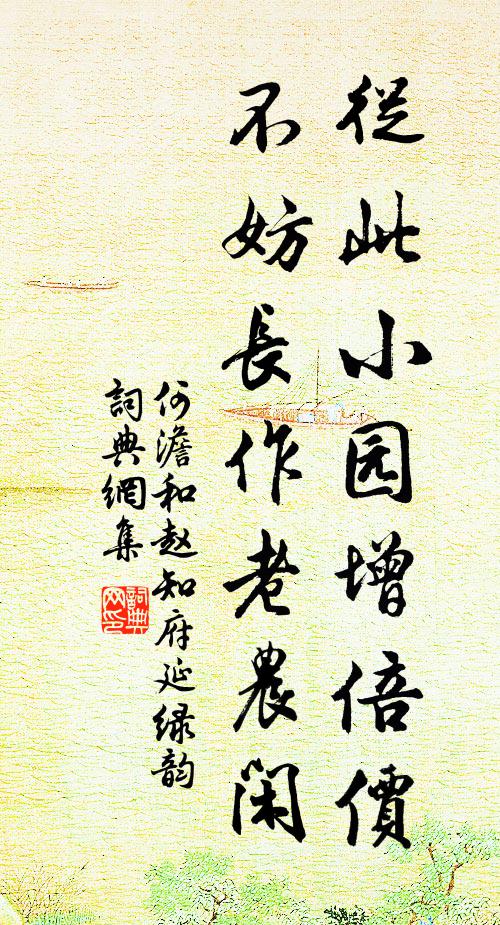 從此小园增倍價
不妨長作老農閑
何澹和赵知府延绿韵
詞典網集
詞典网印